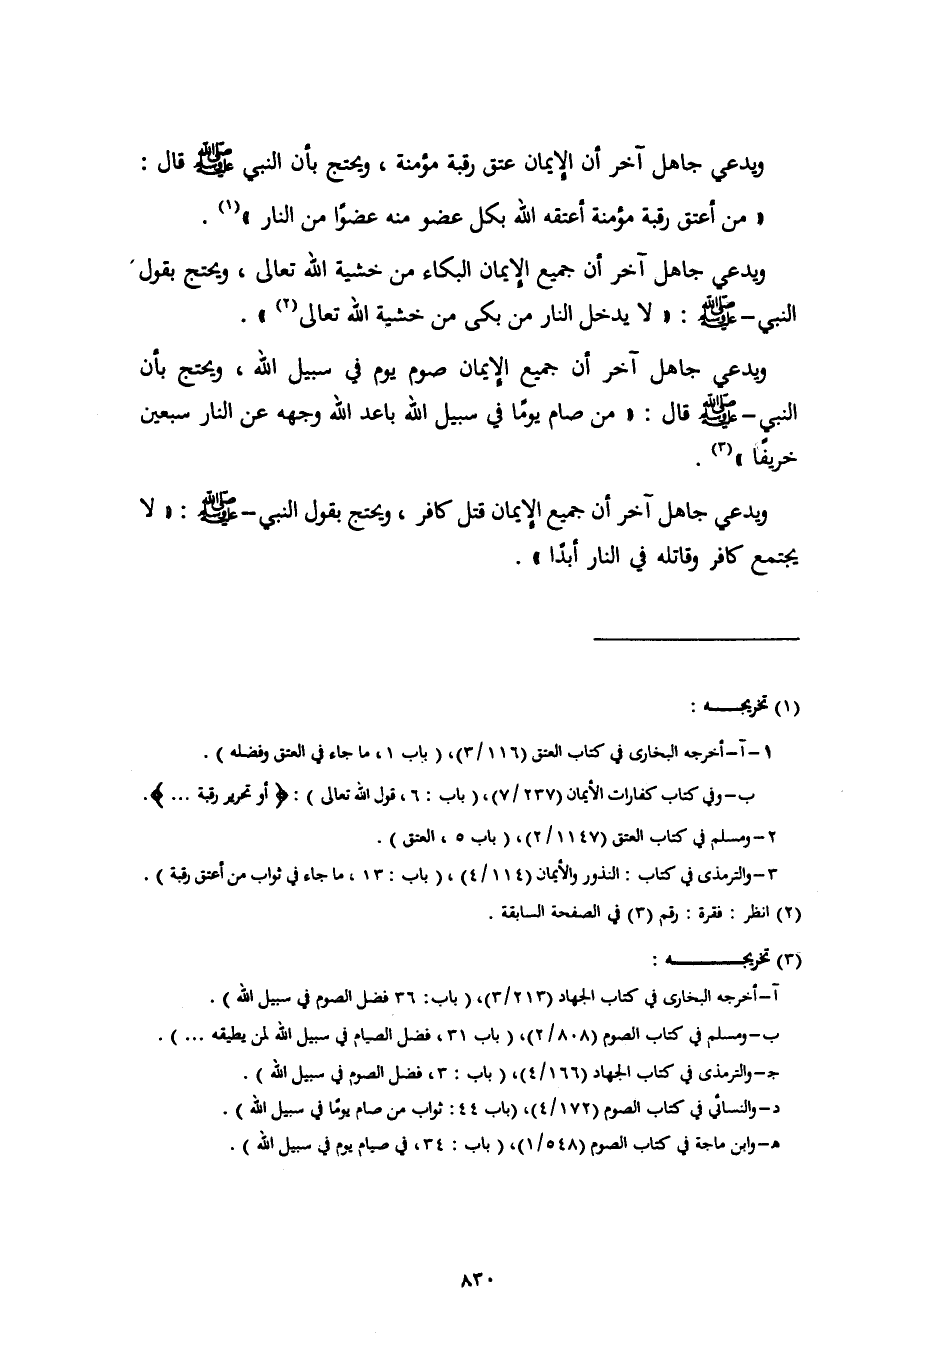 ويدعي جاهل آخر أن الإيمان عتق رقبة مؤمنة ، ويحتج بأن النبي ﷺ قال :
« من أعتق رقبة مؤمنة أعتقه الله بكل عضو منه عضوًا من النار »(١) .
ويدعي جاهل آخر أن جميع الإيمان البكاء من خشية الله تعالى ، ويحتج بقول
النبي-ﷺ : « لا يدخل النار من بكى من خشية الله تعالى(٢) » .
ويدعي جاهل آخر أن جميع الإيمان صوم يوم في سبيل الله ، ويحتج بأن
النبي-ﷺ قال : « من صام يومًا في سبيل الله باعد الله وجهه عن النار سبعين
خريفًا »(٣) .
ويدعي جاهل آخر أن جميع الإيمان قتل كافر ، ويحتج بقول النبي-ﷺ : « لا
يجتمع كافر وقاتله في النار أبدًا » .
(١) تخريجــــه :
١-آ-أخرجه البخارى في كتاب العتق (٣/١١٦)، ( باب ١ ، ما جاء في العتق وفضله ) .
ب-وفي كتاب كفارات الأيمان (٧/٢٣٧)، ( باب : ٦ ، قول الله تعالى ) : ﴿ أو تحرير رقبة ... ﴾.
٢-ومسلم في كتاب العتق (٢/١١٤٧)، ( باب ٥ ، العتق ) .
٣-والترمذى في كتاب : النذور والأيمان (٤/١١٤) ، ( باب : ١٣ ، ما جاء في ثواب من أعتق رقبة ) .
(٢) انظر : فقرة : رقم (٣) في الصفحة السابقة .
(٣) تخريجــــــــه :
آ-أخرجه البخارى في كتاب الجهاد (٣/٢١٣)، ( باب: ٣٦ فضل الصوم في سبيل الله ) .
ب-ومسلم في كتاب الصوم (٢/٨٠٨)، ( باب ٣١ ، فضل الصيام في سبيل الله لمن يطيقه ... ) .
جـ-والترمذى في كتاب الجهاد (٤/١٦٦)، ( باب : ٣ ، فضل الصوم في سبيل الله ) .
د-والنسائي في كتاب الصوم (٤/١٧٢)، (باب ٤٤ : ثواب من صام يومًا في سبيل الله ) .
هـ-وابن ماجة في كتاب الصوم (١/٥٤٨)، ( باب : ٣٤ ، في صيام يوم في سبيل الله ) .
٨٣٠